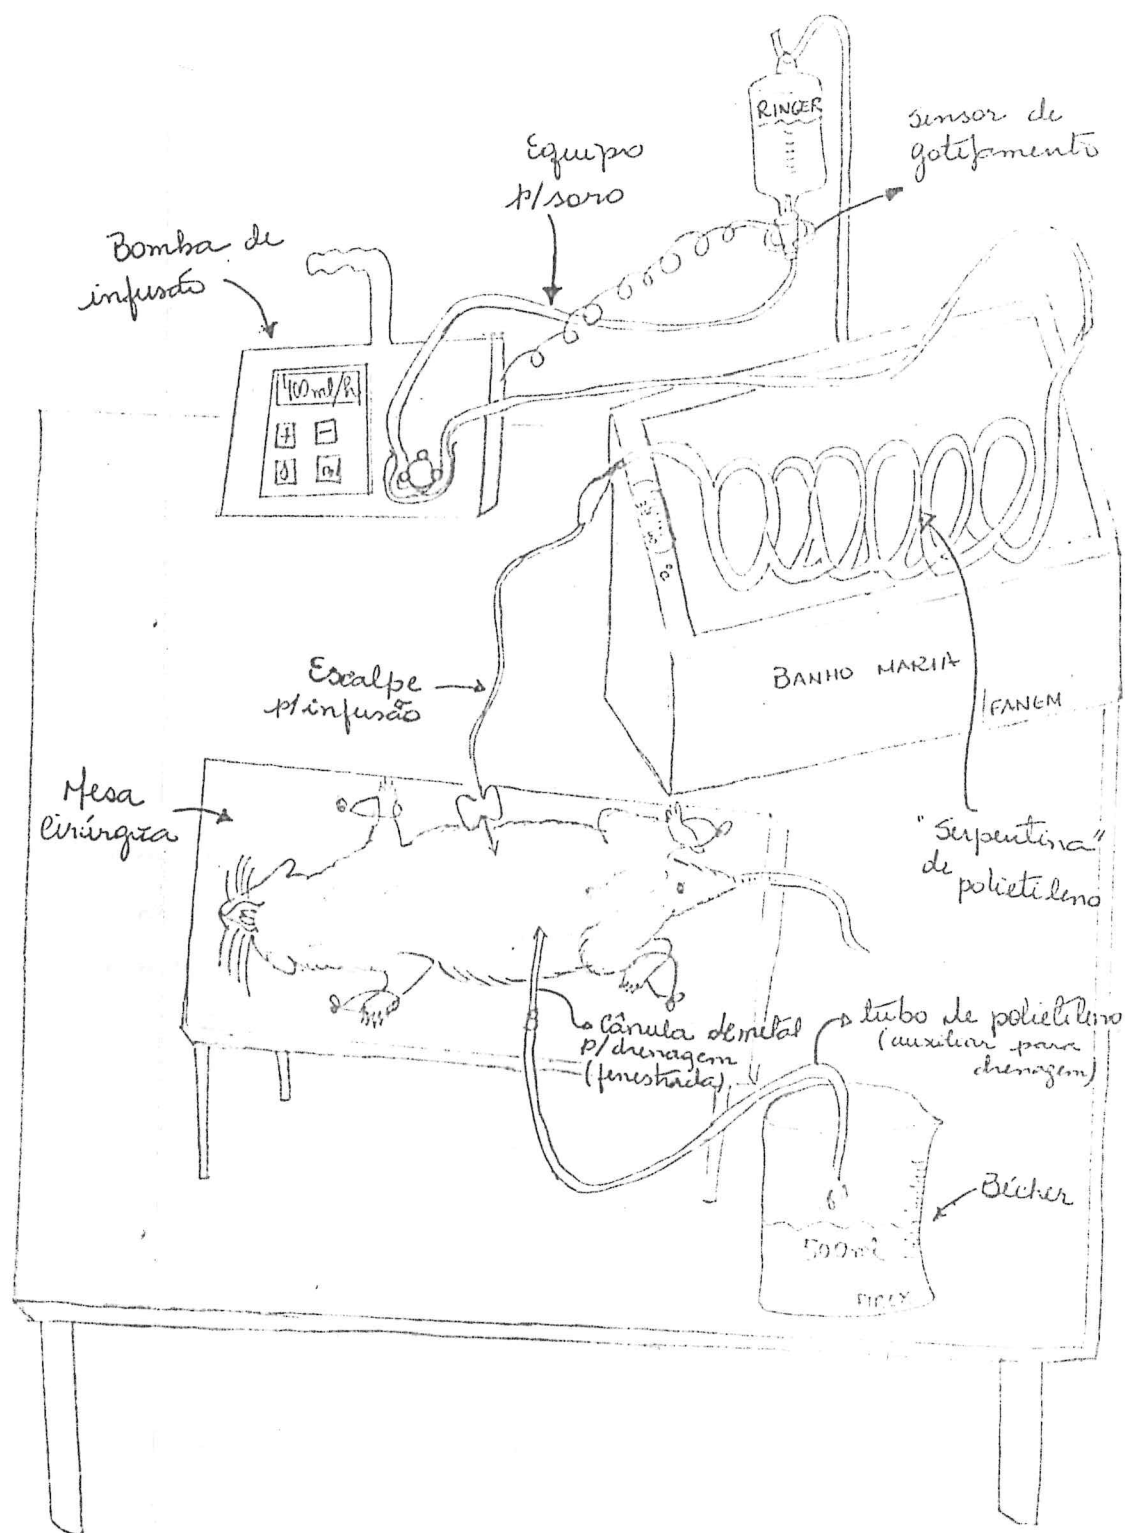 RINGER
sensor de
gotejamento
Equipo
p/soro
Bomba de
infusão
400ml/h
+ -
BANHO MARIA
FANEM
Escalpe
p/infusão
Mesa
Cirúrgica
"Serpentina"
de
polietileno
Cânula de metal
p/drenagem
(fenestrada)
tubo de polietileno
(auxiliar para
drenagem)
Bécher
500ml
PIREX